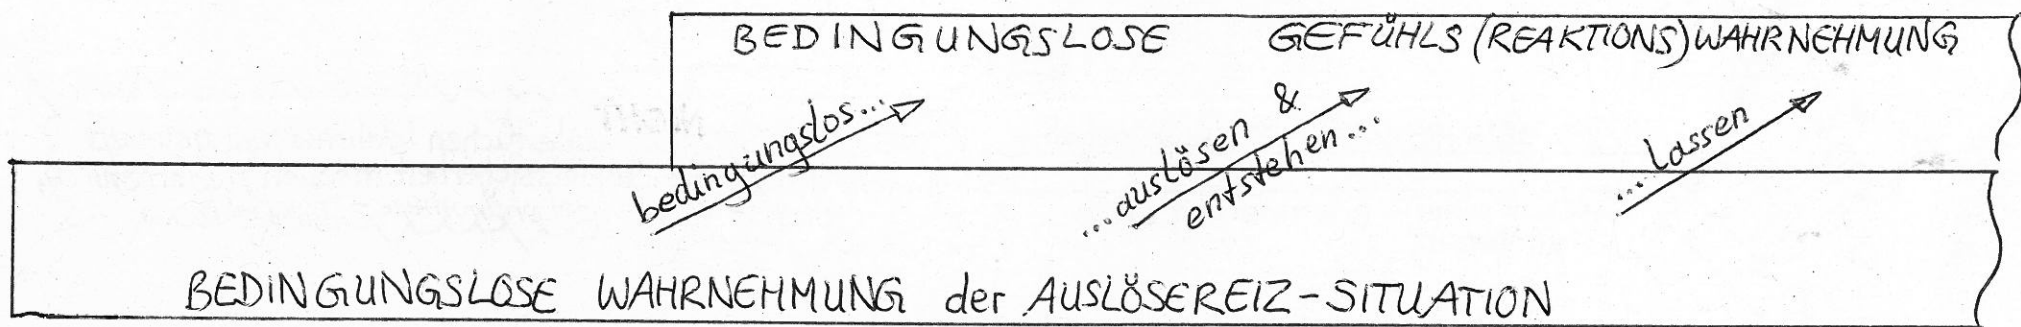 BEDINGUNGSLOSE GEFÜHLS(REAKTIONS)WAHRNEHMUNG
bedingungslos...
...auslösen &
entstehen...
...lassen
BEDINGUNGSLOSE WAHRNEHMUNG der AUSLÖSEREIZ-SITUATION